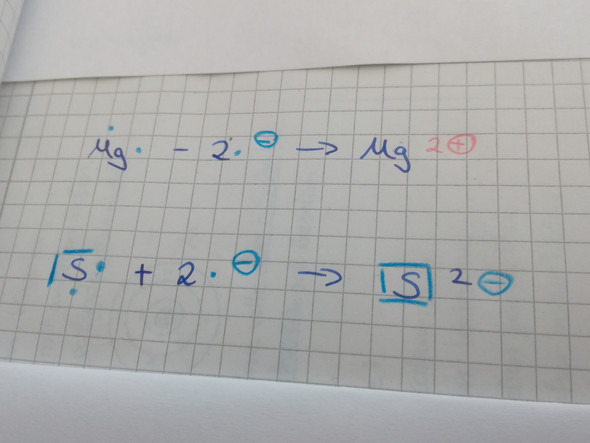 Mg· - 2·⊖ → Mg 2⊕
|S̅· + 2·⊖ → |S̅| 2⊖